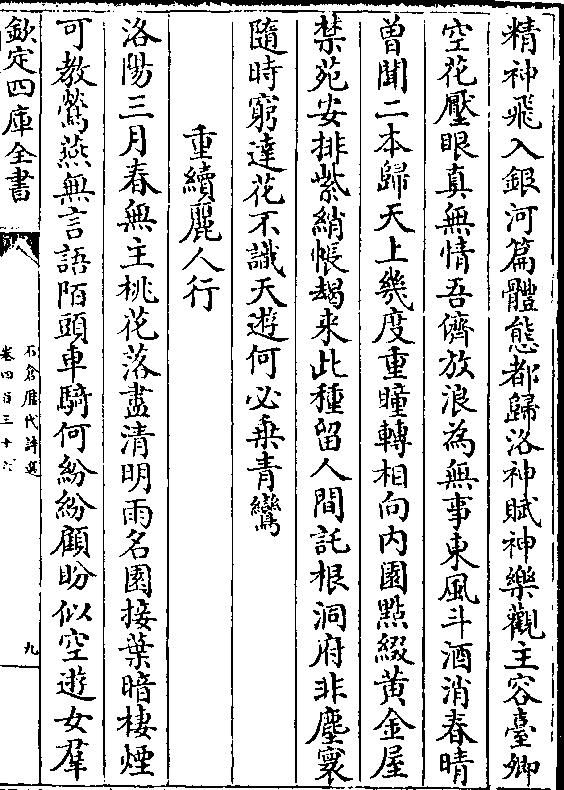 精神飛入銀河篇體態都歸洛神賦神樂觀主容臺卿
空花壓眼真無情吾儕放浪為無事東風斗酒消春晴
曾聞二本歸天上幾度重瞳轉相向内園點綴黄金屋
禁苑安排紫綃帳朅來此種留人間託根洞府非塵寰
隨時窮達花不識天遊何必乗青鸞
重續麗人行
洛陽三月春無主桃花落盡清明雨名園接葉暗棲煙
可教鶯燕無言語陌頭車騎何紛紛顧盼似空遊女羣
欽定四庫全書
石倉歷代詩選
卷四百三十
九